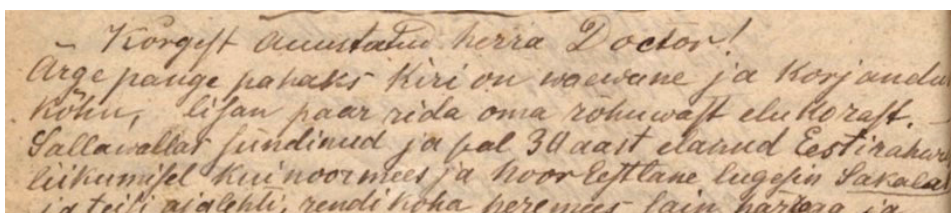 Körgest auustatud herra Doctor!
Ärge pange pahaks kiri on waewane ja korjandu
kõhn, lisan paar rida oma rõhuwast elukorast.
Sallawallas sündinud ja pal 30 aast elanud Eestirahwa
liikumisel kui noormees ja noor Eestlane lugesin Sakala
ja teisi ajalehti, rendikoha peremees sain pärega ja